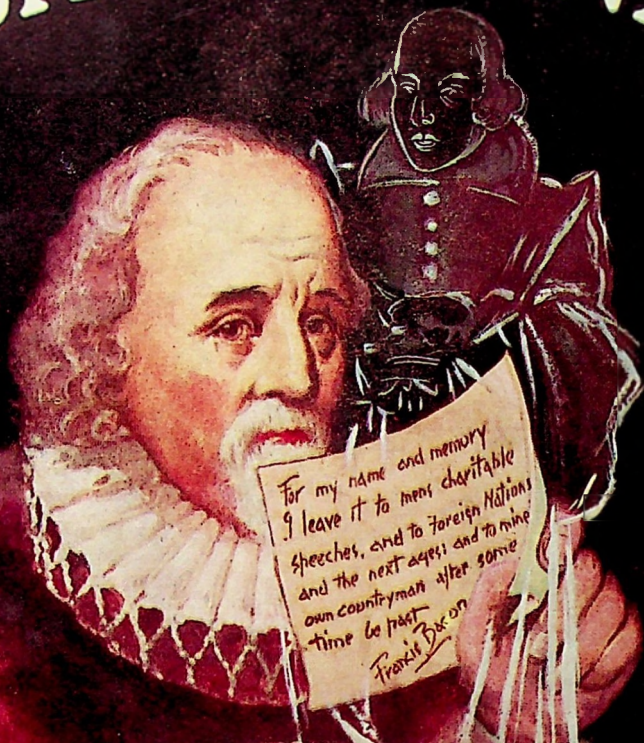 For my name and memory
I leave it to mens charitable
speeches, and to Foreign Nations
and the next ages: and to mine
own countryman after some
time be past
Francis Bacon